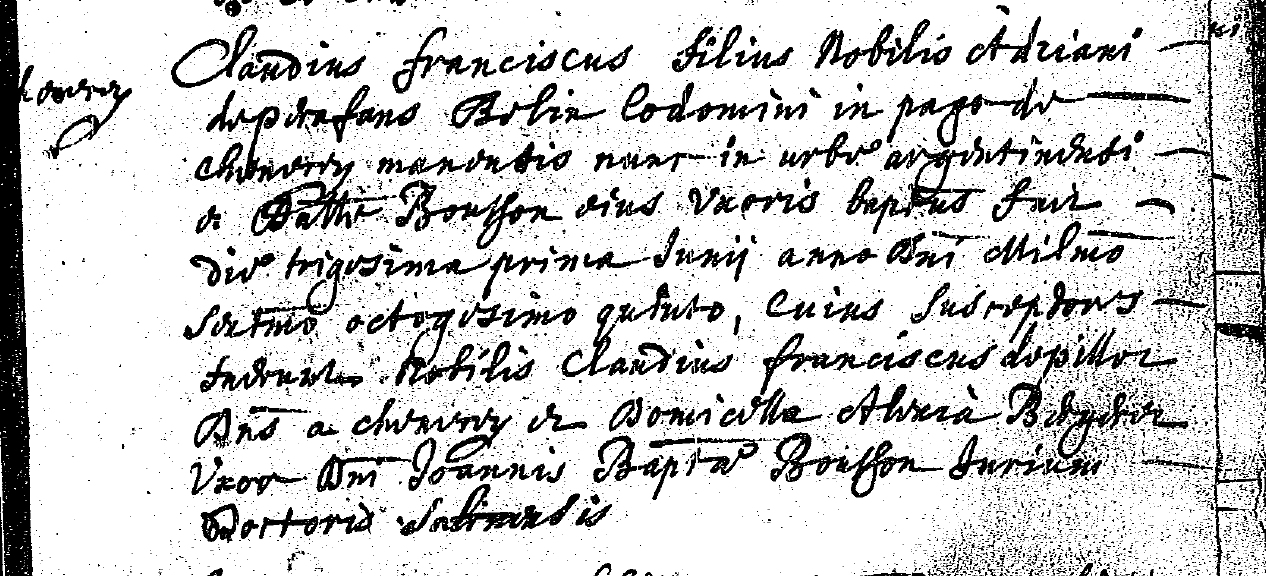 chevroy
Claudius franciscus filius Nobilis Adriani
Belin Codomini in pago de
chevroy manentis nunc in urbe argentinensi
et Bouhon eius Uxoris baptus fuit
die trigesima prima Junij anno Dni Milmo
Sextmo octogesimo quinto, Cuius Susceptores
fuerunt Nobilis Claudius franciscus
Dns a chevroy et Domicella
Uxor Dni Joannis Bapta Bouhon Jurium
Doctoris Salinensis